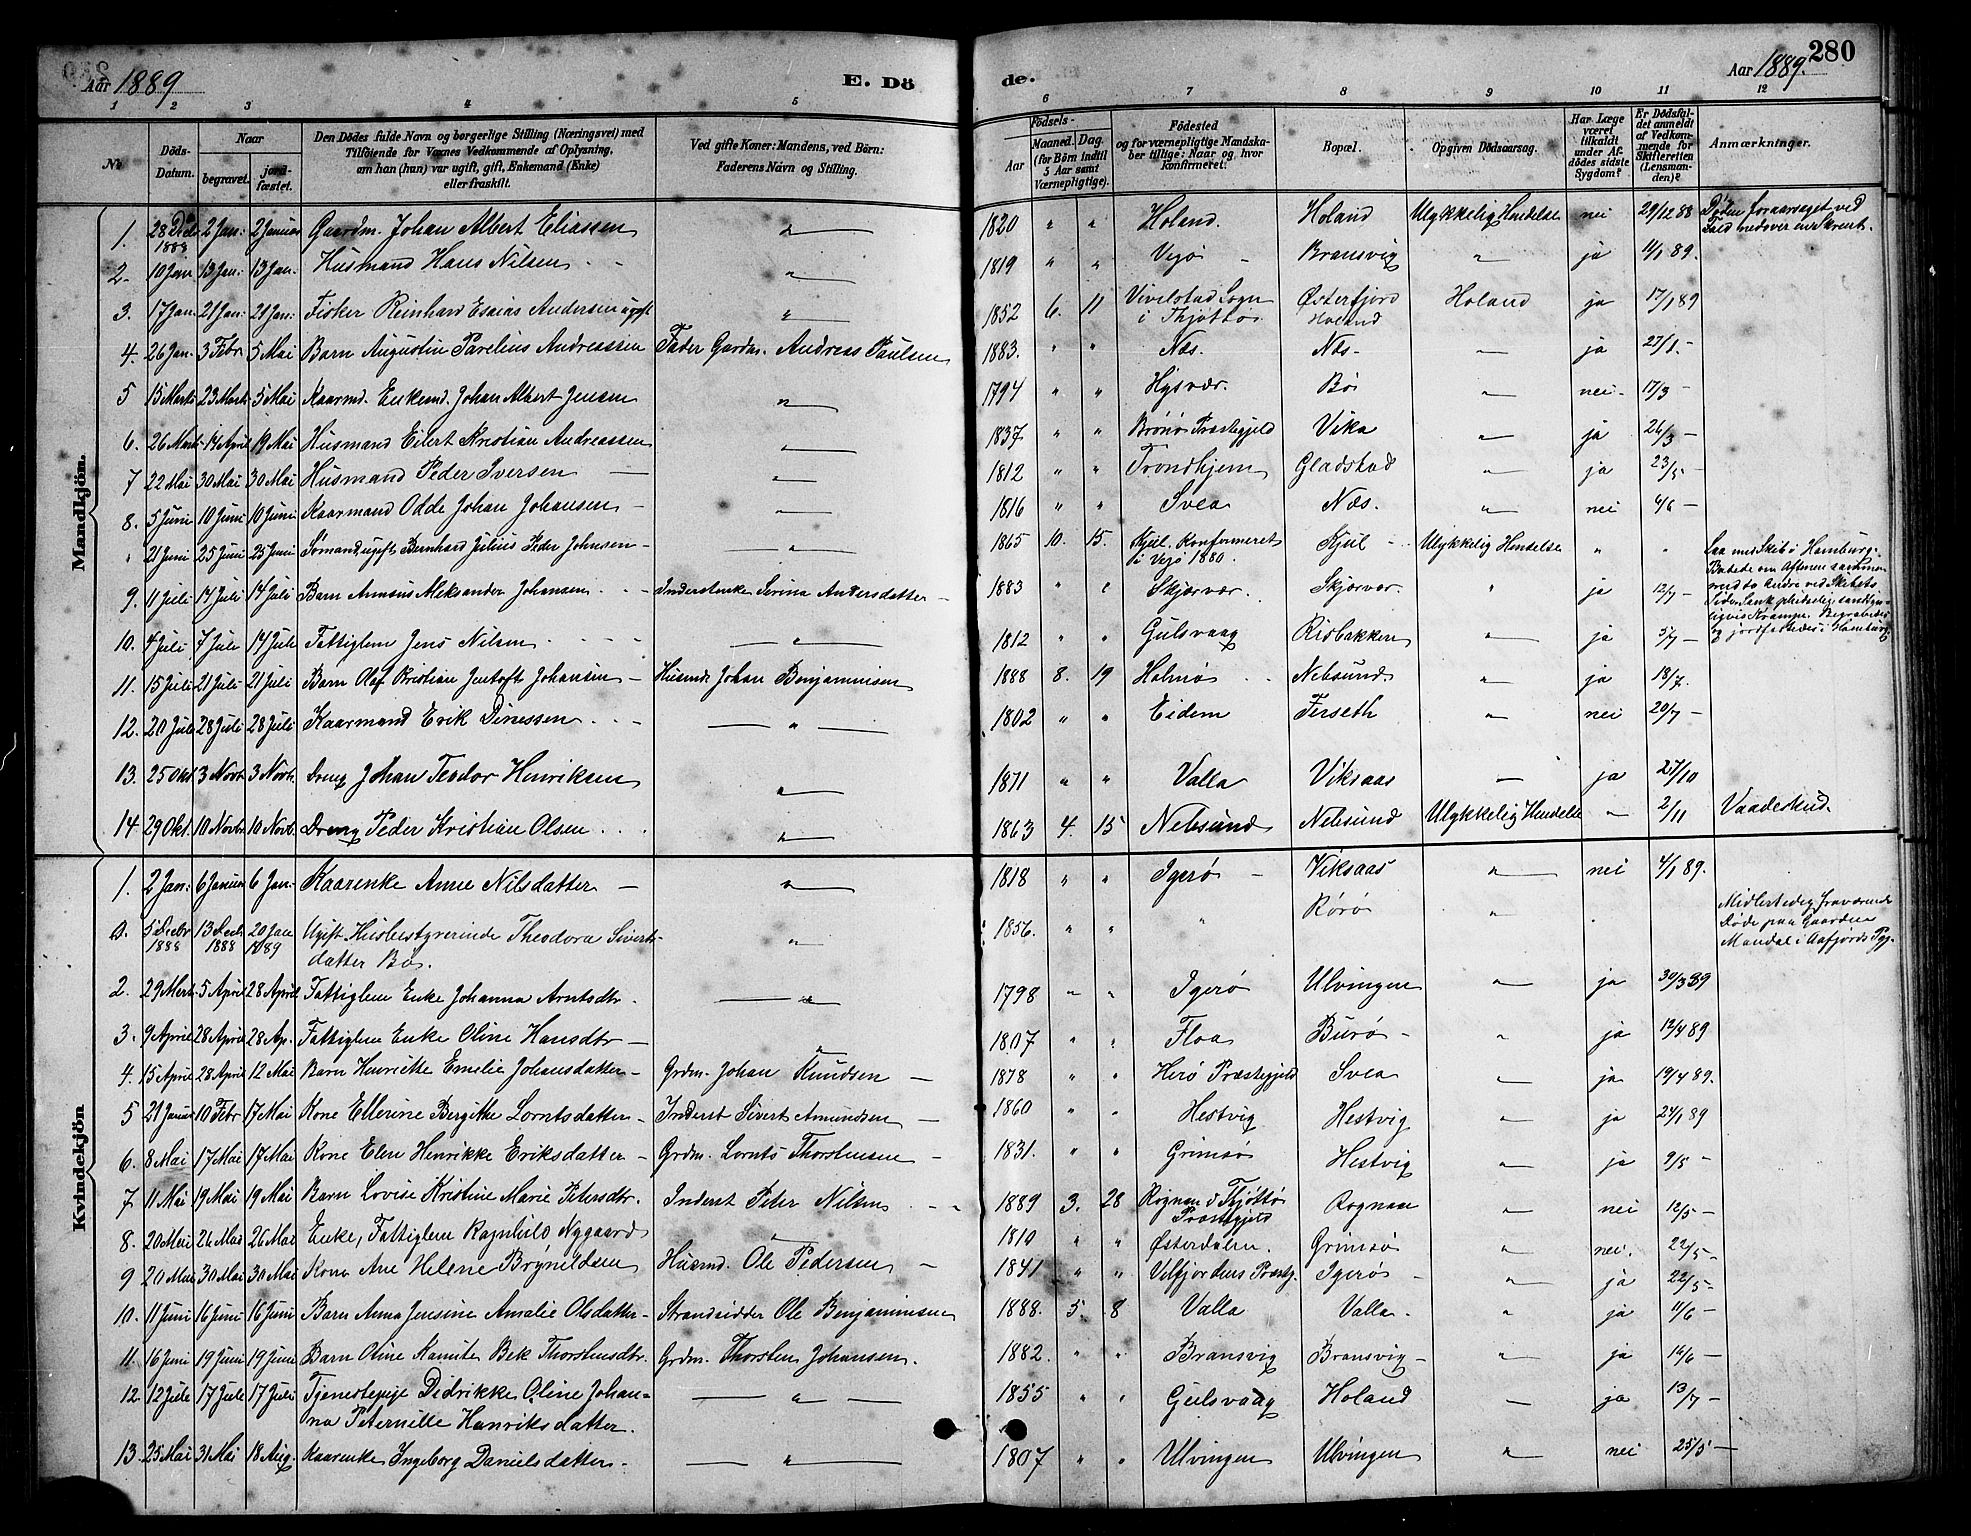 280
Aar 1889
E. Dö
de.
Aar 1889.
1 2 3 4 5 6 7 8 9 10 11 12
No
Döds-Datum.
Naar
begravet.
jordfæstet.
Den Dödes fulde Navn og borgerlige Stilling (Næringsvei) med
Tilföiende for Voxnes Vedkommende af Oplysning,
om han (hun) var ugift, gift, Enkemand (Enke)
eller fraskilt.
Ved gifte Koner: Mandens, ved Börn:
Faderens Navn og Stilling.
Födsels-
Aar
Maaned. Dag.
(for Börn indtil
5 Aar samt
Værnepligtige).
Födested
og for værnepligtige Mandskaber tillige: Naar og hvor
konfirmeret.
Bopæl.
Opgiven Dödsaarsag.
Har Læge
været
tilkaldt
under Afdödes sidste
Sygdom?
Er Dödsfaldet anmeldt
af Vedkommende for
Skifteretten
(Lensmanden)?
Anmærkninger.
Mandkjön.
1. 28 Decbr 1888 2 Jan: 2 Januar Gaardm. Johan Albert Eliassen " 1820 " " Holand. Holand Ulykkelig Hendelse nei 29/12 88 Døden foraarsaget ved Fald nedover en Skrent.
2. 10 Jan 13 Jan: 13 Jan. Husmand Hans Nilsen " 1819 " " Vejø Bransvig " ja 11/1 89.
3. 17 Jan 21 Jan: 21 Jan: Fisker Reinhard Esaias Andersen ugift " 1852 6. 11 Vivelstad Sogn i Thjøttø. Østerfjord Holand Holand ja 17/1 89
4. 26 Jan. 3 Febr 5 Mai Barn Augustin Parelius Andreassen Fader Gardm. Andreas Paulsen 1883. " " Næs. Næs. " ja 27/1 -
5 15 Marts 23 Marts 5 Mai Kaarmd. Enkemd. Johan Albert Jensen " 1794 " " Hysvær. Bø " nei 17/3 -
6. 26 Marts 14 April 19 Mai Husmand Eilert Kristian Andreassen " 1837 " " Brønø Præstegjeld Vika " ja 26/3 -
7 22 Mai 30 Mai 30 Mai Husmand Peder Iversen " 1812 " " Trondhjem Gladstad " ja 23/5 -
8. 5 Juni 10 Juni 10 Juni Kaarmand Odde Johan Johansen " 1816 " " Svea Næs. " nei 4/6 -
" 21 Juni 25 Juni 25 Juni Sømand ugift Bernhard Julius Peder Johnsen " 1865 10. 15. Kjul. Konfirmeret i Vejø 1880. Kjul Ulykkelig Hendelse " " Laa med Skib i Hamburg. Badede om Aftenen sammen med to andre ved Skibets Side. Sank pludselig, sandsynligvis Krampe. Begravedes og jordfæstedes i Hamburg
9. 11 Juli 14 Juli 14 Juli Barn Amsus Aleksander Johansen Inderstenke Serina Andersdatter 1883 " " Skjærvær. Skjærvær. " ja 12/7 -
10. 4 Juli 7 Juli 14 Juli Fattiglem Jens Nilsen " 1812 " " Gulsvaag Risbakken " ja 5/7 -
11. 15 Juli 21 Juli 21 Juli Barn Olaf Kristian Jentoft Johansen Husmd. Johan Benjaminsen 1888 8. 19 Halmø Nebsund " ja 18/7.
12. 20 Juli 28 Juli 28 Juli Kaarmand Erik Dinessen " 1802 " " Eidem Ferseth " nei 20/7 -
13. 25 Okt 3 Novb. 3 Novb. Dreng Johan Teodor Henriksen " 1871 " " Valla Viksaas ja 27/10
14 29 Okt. 10 Novb. 10 Novb. Dreng Peder Kristian Olsen " 1863 4. 15 Nebsund Nebsund Ulykkelig Hendelse " 2/11 Vaadeskud.
Kvindekjön
1. 2 Jan: 6 Januar 6 Jan. Kaarenke Anne Nilsdatter " 1818 " " Igerø Viksaas " nei 4/1 89.
5 Decbr 1888 13 Decb. 1888 20 Jan 1889 Ugift Husbestyrerinde Theodora Siverts- " 1856. " " " Rørø " Midlertidig fraværende Døde paa Gaarden Mandal i Aafjords Pgj.
datter Bø.
2. 29 Mart 5 April 28 April Fattiglem Enke Johanna Arntsdtr. " 1798 " " Igerø Ulvingen " ja 30/3 89
3. 9 April 28 April 28 Ap. Fattiglem Enke Oline Hansdtr " 1807 " " Floa Burø " ja 12/4 89
4. 15 April 28 April 12 Mai Barn Henriette Emelie Johansdatter Grdm. Johan Knudsen 1878 " " Herø Præstegjeld Svea " ja 19/4 89.
5 21 Januar 10 Febr 17 Mai Kone Ellerine Bergitte Lorntsdatter Inderst Sivert Amundsen 1860 " " Hestvig Hestvig " ja 24/1 89
6. 8 Mai 17 Mai 17 Mai Kone Elen Henrikke Eriksdatter Grdm. Lornts Thorstensen 1831. " " Grimsø Hestvig " ja 9/5 -
7 11 Mai 19 Mai 19 Mai Barn Lovise Kristine Marie Petersdtr. Inderst Peter Nilsen 1889 3. 28 Rognan i Thjøttø Præstegjeld Rognan " nei 12/5 -
8. 20 Mai 26 Mai 26 Mai Enke, Fattiglem Ragnhild Nygaard " 1819 " " Østerdalen. Grimsø " nei. 22/5 -
9 20 Mai 30 Mai 30 Mai Kone Ane Helene Brynildsen Husmd. Ole Pedersen 1841 " " Velfjordens Præstg. Igerø " ja 22/5 -
10. 11 Juni 16 Juni 16 Juni Barn Anna Jensine Amalie Olsdatter Strandsidder Ole Benjaminsen 1888. 5. 8 Valla Valla. " ja 11/6 -
11. 16 Juni 19 Juni 19 Juni Barn Oline Kamite Bek Thorstensdtr. Grdm. Thorsten Johansen. 1882. " " Bransvig Bransvig " ja 16/6 -
12. 12 Juli 17 Juli 17 Juli Tjenestepige Didrikke Oline Johan- " 1855 " " Gulsvaag Holand ja 13/7 -
na Peternille Henriksdatter.
13. 25 Mai 31 Mai 18 Aug. Kaarenke Ingeborg Danielsdatter. " 1807 " " Ulvingen Ulvingen " nei 25/5 -